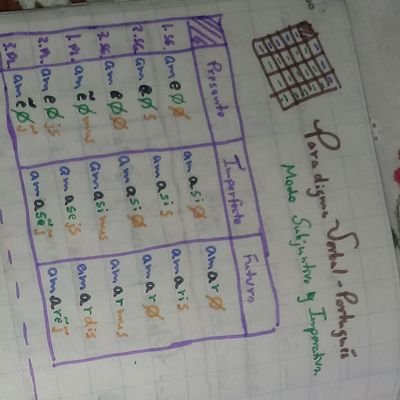 Paradigma Verbal - Portugués
Modo Subjuntivo y Imperativo.
Presente Imperfecto Futuro
1.sg. ameØØ amasiØ amarØ
2.sg. ameØs amasis amaris
3.sg. ameØØ amasiØ amarØ
1.Pl. amẽØmus amasimus amarmus
2.Pl. ameØjs amasejs amardis
3.Pl. amẽØj̃ amasẽj̃ amarẽj̃